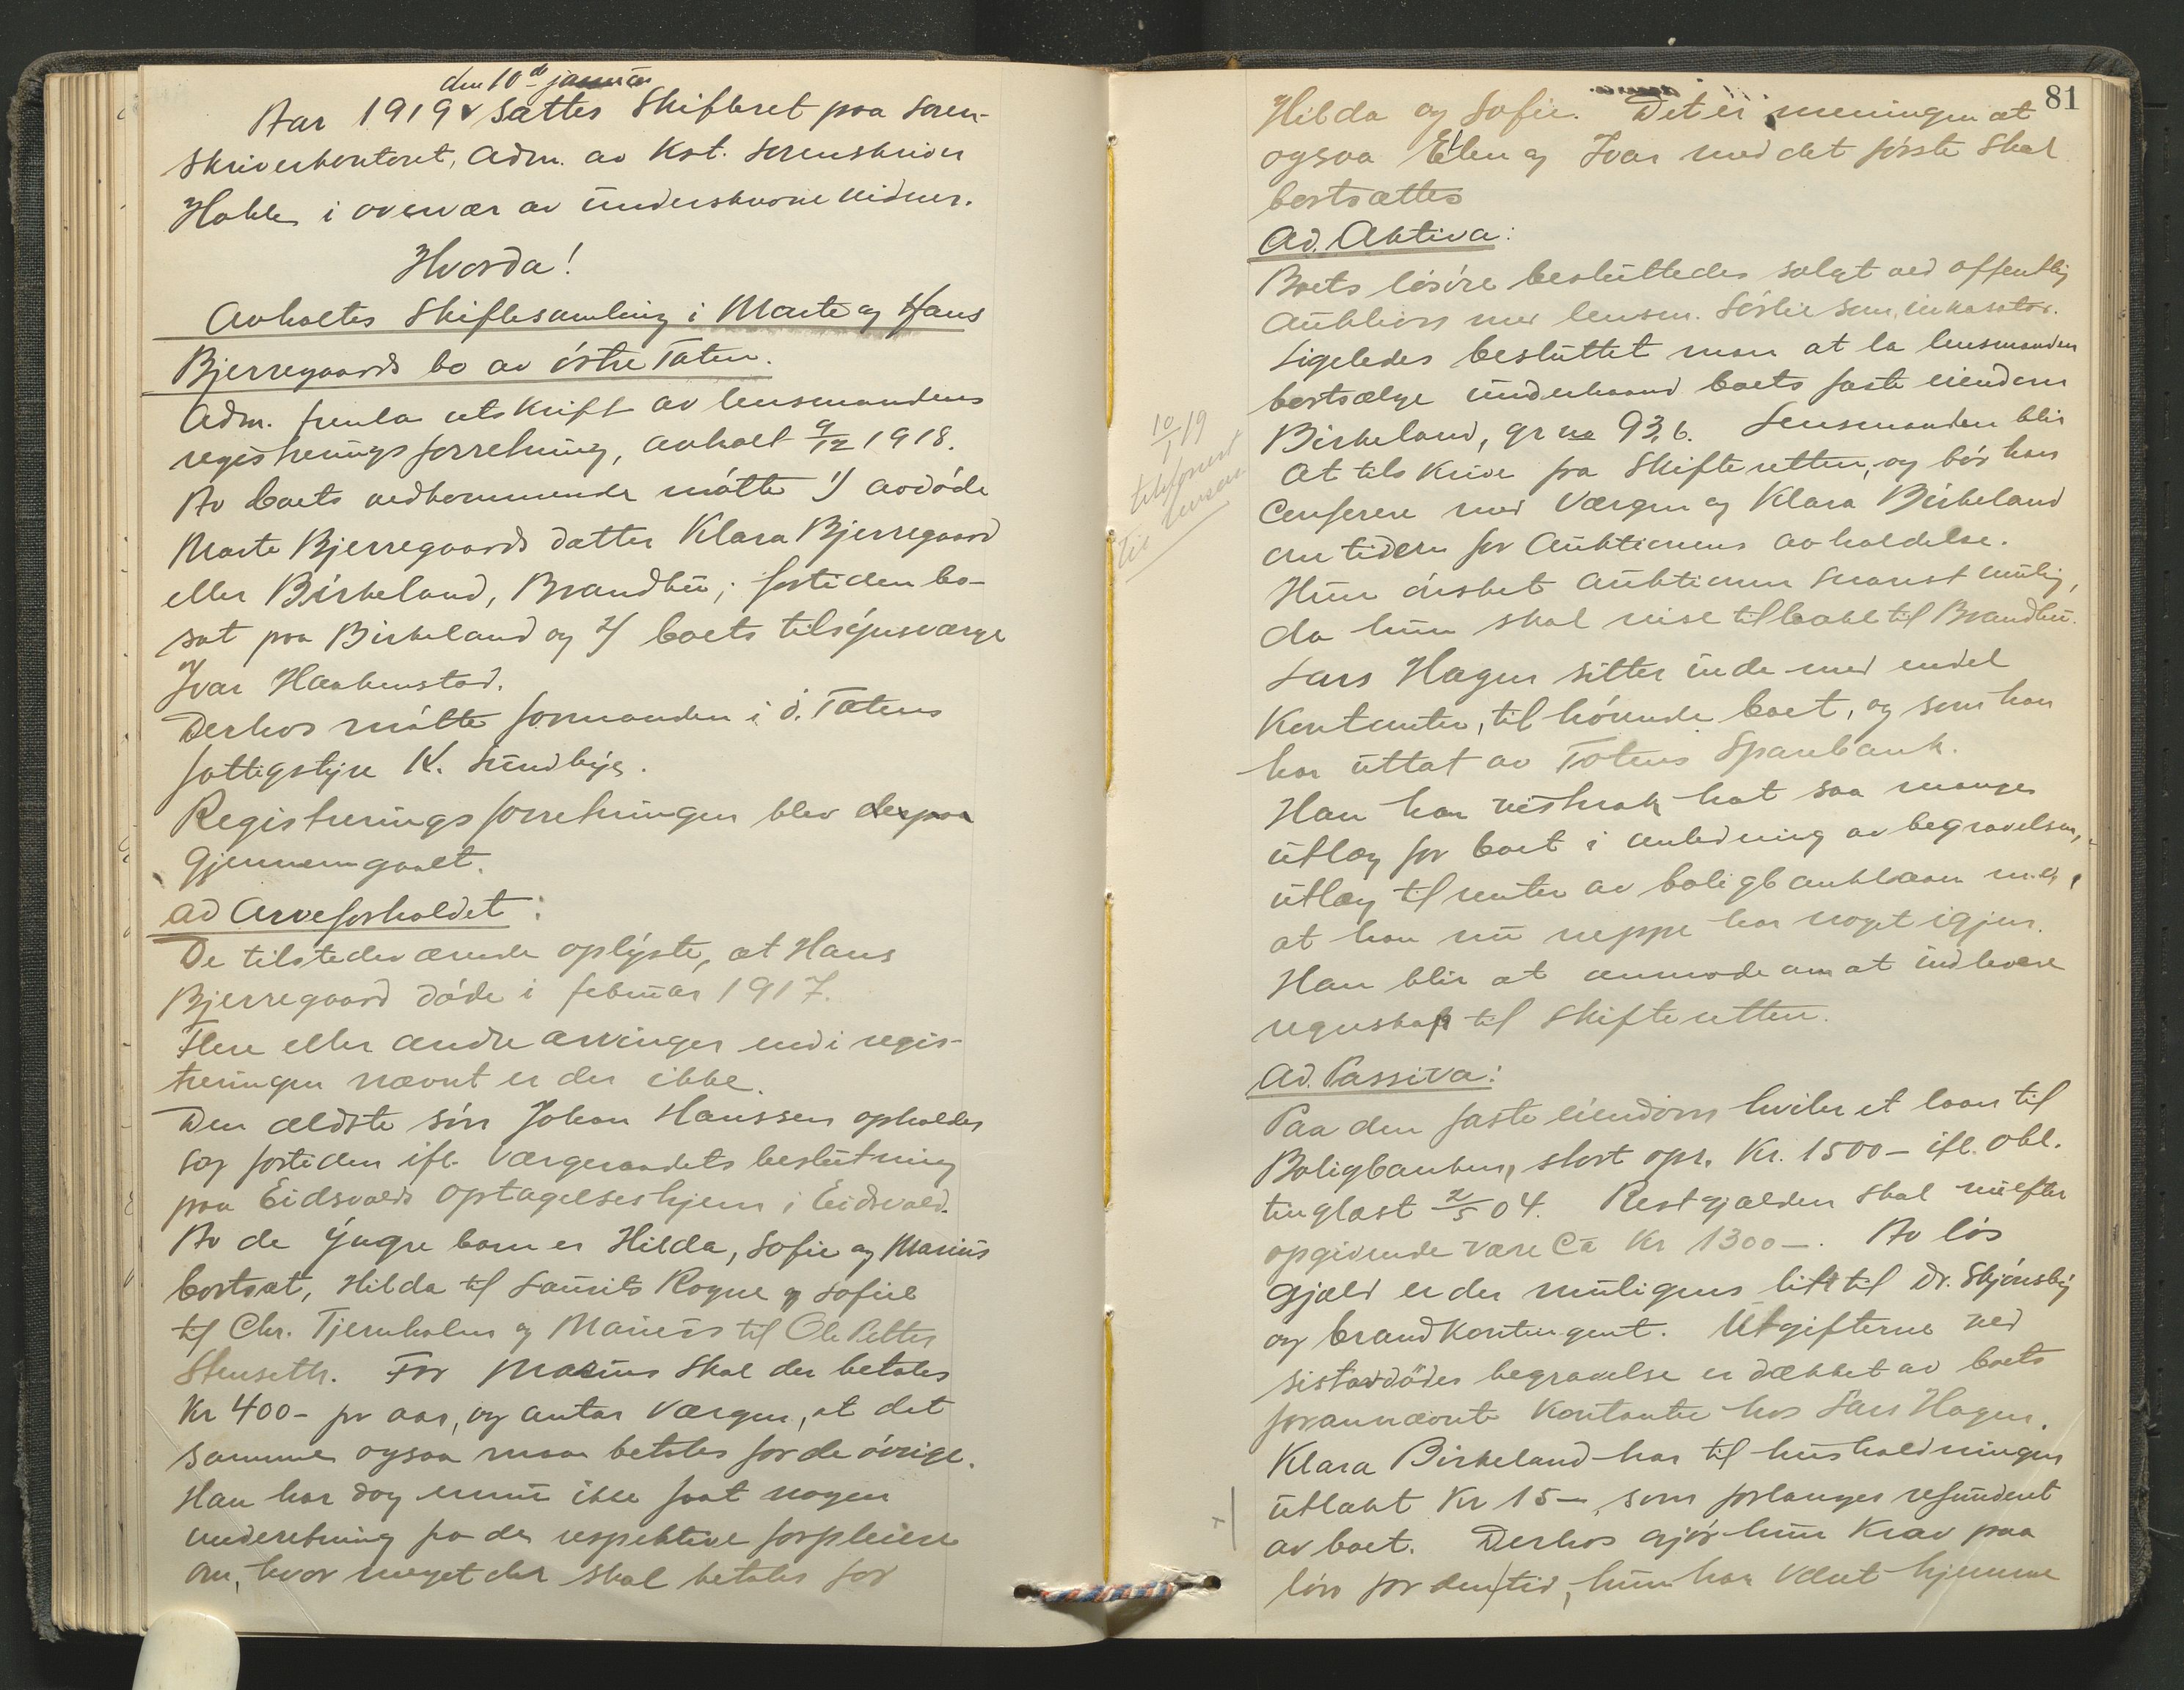 den 10de januar
Aar 1919 sattes Skifteret paa Soren-
skriverkontoret, adm. av Kst. sorenskriver
i overvær av underskrevne vidner.
Hvorda!
Avholtes Skiftesamling i Marte og Hans
Bjerregaards bo av østre Toten.
Adm. fremla utskrift av lensmandens
registreringsforretning, avholt 9/12 1918.
Av boets vedkommende møtte 1) avdøde
Marte Bjerregaards datter Klara Bjerregaard
eller Birkeland, Brandbu, fortiden bo-
sat paa Birkeland og 2) boets tilsynsværge
Ivar Haakenstad.
Derhos møtte formanden i Ø. Totens
fattigstyre K. Sundby.
Registreringsforretningen blev derpaa
gjennemgaaet.
ad Arveforholdet:
De tilstedeværende oplyste, at Hans
Bjerregaard døde i februar 1917.
Flere eller andre arvinger end i regis-
treringen nævnt er der ikke.
Den ældste søn Johan Hanssen opholder
sig fortiden ifl. Værgeraadets beslutning
paa Eidsvolds Optagelseshjem i Eidsvold.
Av de yngre barn er Hilda, Sofie og Marius
bortsat, Hilda til Laurits Rogne og Sofie
til Chr. Tjernholm og Marius til Ole Petter
Stenseth. For Marius skal der betales
Kr 400- pr aar, og antar Værgen, at det
samme ogsaa maa betales for de øvrige.
Han har dog ennu ikke faat nogen
underetning fra de respektive forpleiere
om, hvor meget der skal betales for
81
Hilda og Sofie. Det er meningen at
ogsaa Ellen og Ivar med det første skal
bortsættes
Ad. Aktiva:
Boets løsøre besluttedes solgt ved offentlig
Auktion med lensm. Sørlie som inkasator.
Ligeledes besluttet man at la lensmanden
bortsælge underhaand boets faste eiendom
Birkeland, gr no 93,6. Lensmanden blir
at tilskrive fra Skifteretten, og bør han
conferere med Værgen og Klara Birkeland
om tiden for Auktionens avholdelse.
Hun ønsket auktionen snarest mulig,
da hun skal reise tilbake til Brandbu.
Lars Hagen sitter inde med endel
Kontanter, tilhørende boet, og som han
har uttat av Totens Sparebank.
Han har vistnok hat saa mange
utlæg for boet i anledning av begravelsen,
utlæg til renter av boligbanklaan m.v.,
at han nu neppe har noget igjen.
Han blir at anmode om at indlevere
regnskap til Skifteretten.
10/1 19
telefonert
til lensm.
Ad. Passiva:
Paa den faste eiendom hviler et laan til
Boligbanken, stort opr. Kr. 1500- ifl. obl.
tinglæst 2/5 04. Restgjælden skal nu efter
opgivende være Ca Kr 1300-. Av løs
gjæld er der muligens litt til Dr. Skjønsby
og brandkontingent. Utgifterne ved
sistavdødes begravelse er dækket av boets
forannævnte Kontanter hos Lars Hagen.
Klara Birkeland har til husholdningen
utlakt Kr 15-, som forlanges refunderet
av boet. Derhos gjør hun krav paa
løn for den tid, hun har været hjemme